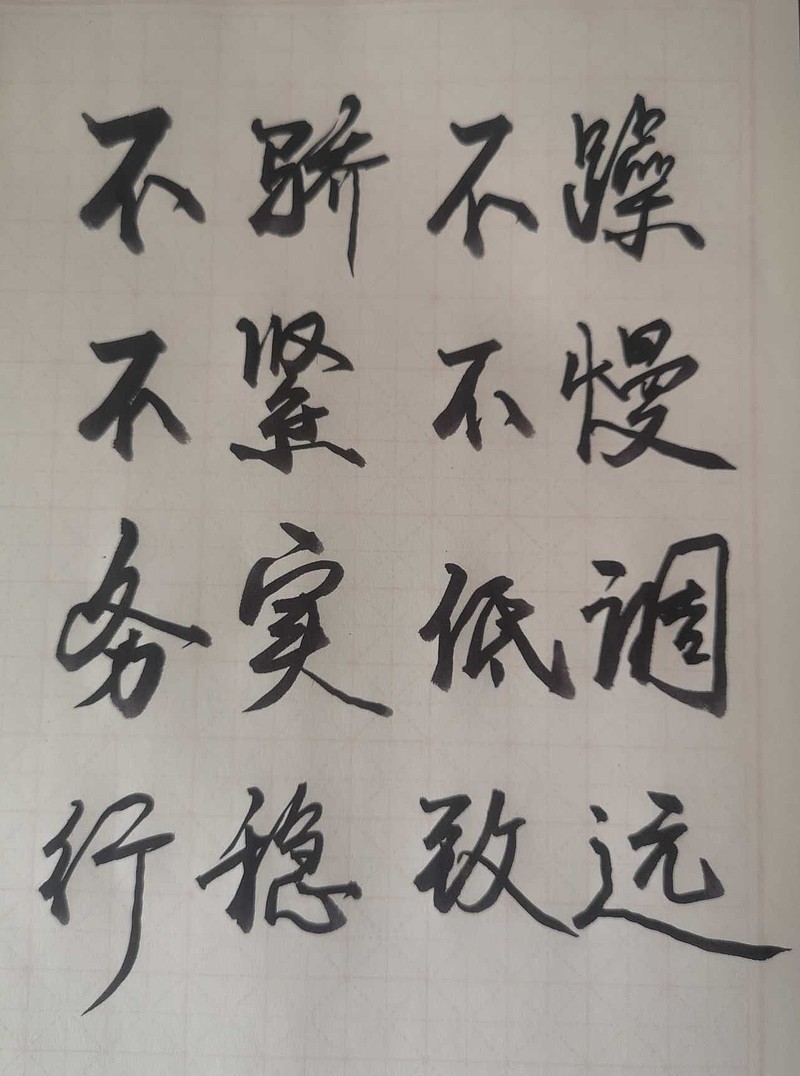 不骄不躁
不紧不慢
务实低调
行稳致远